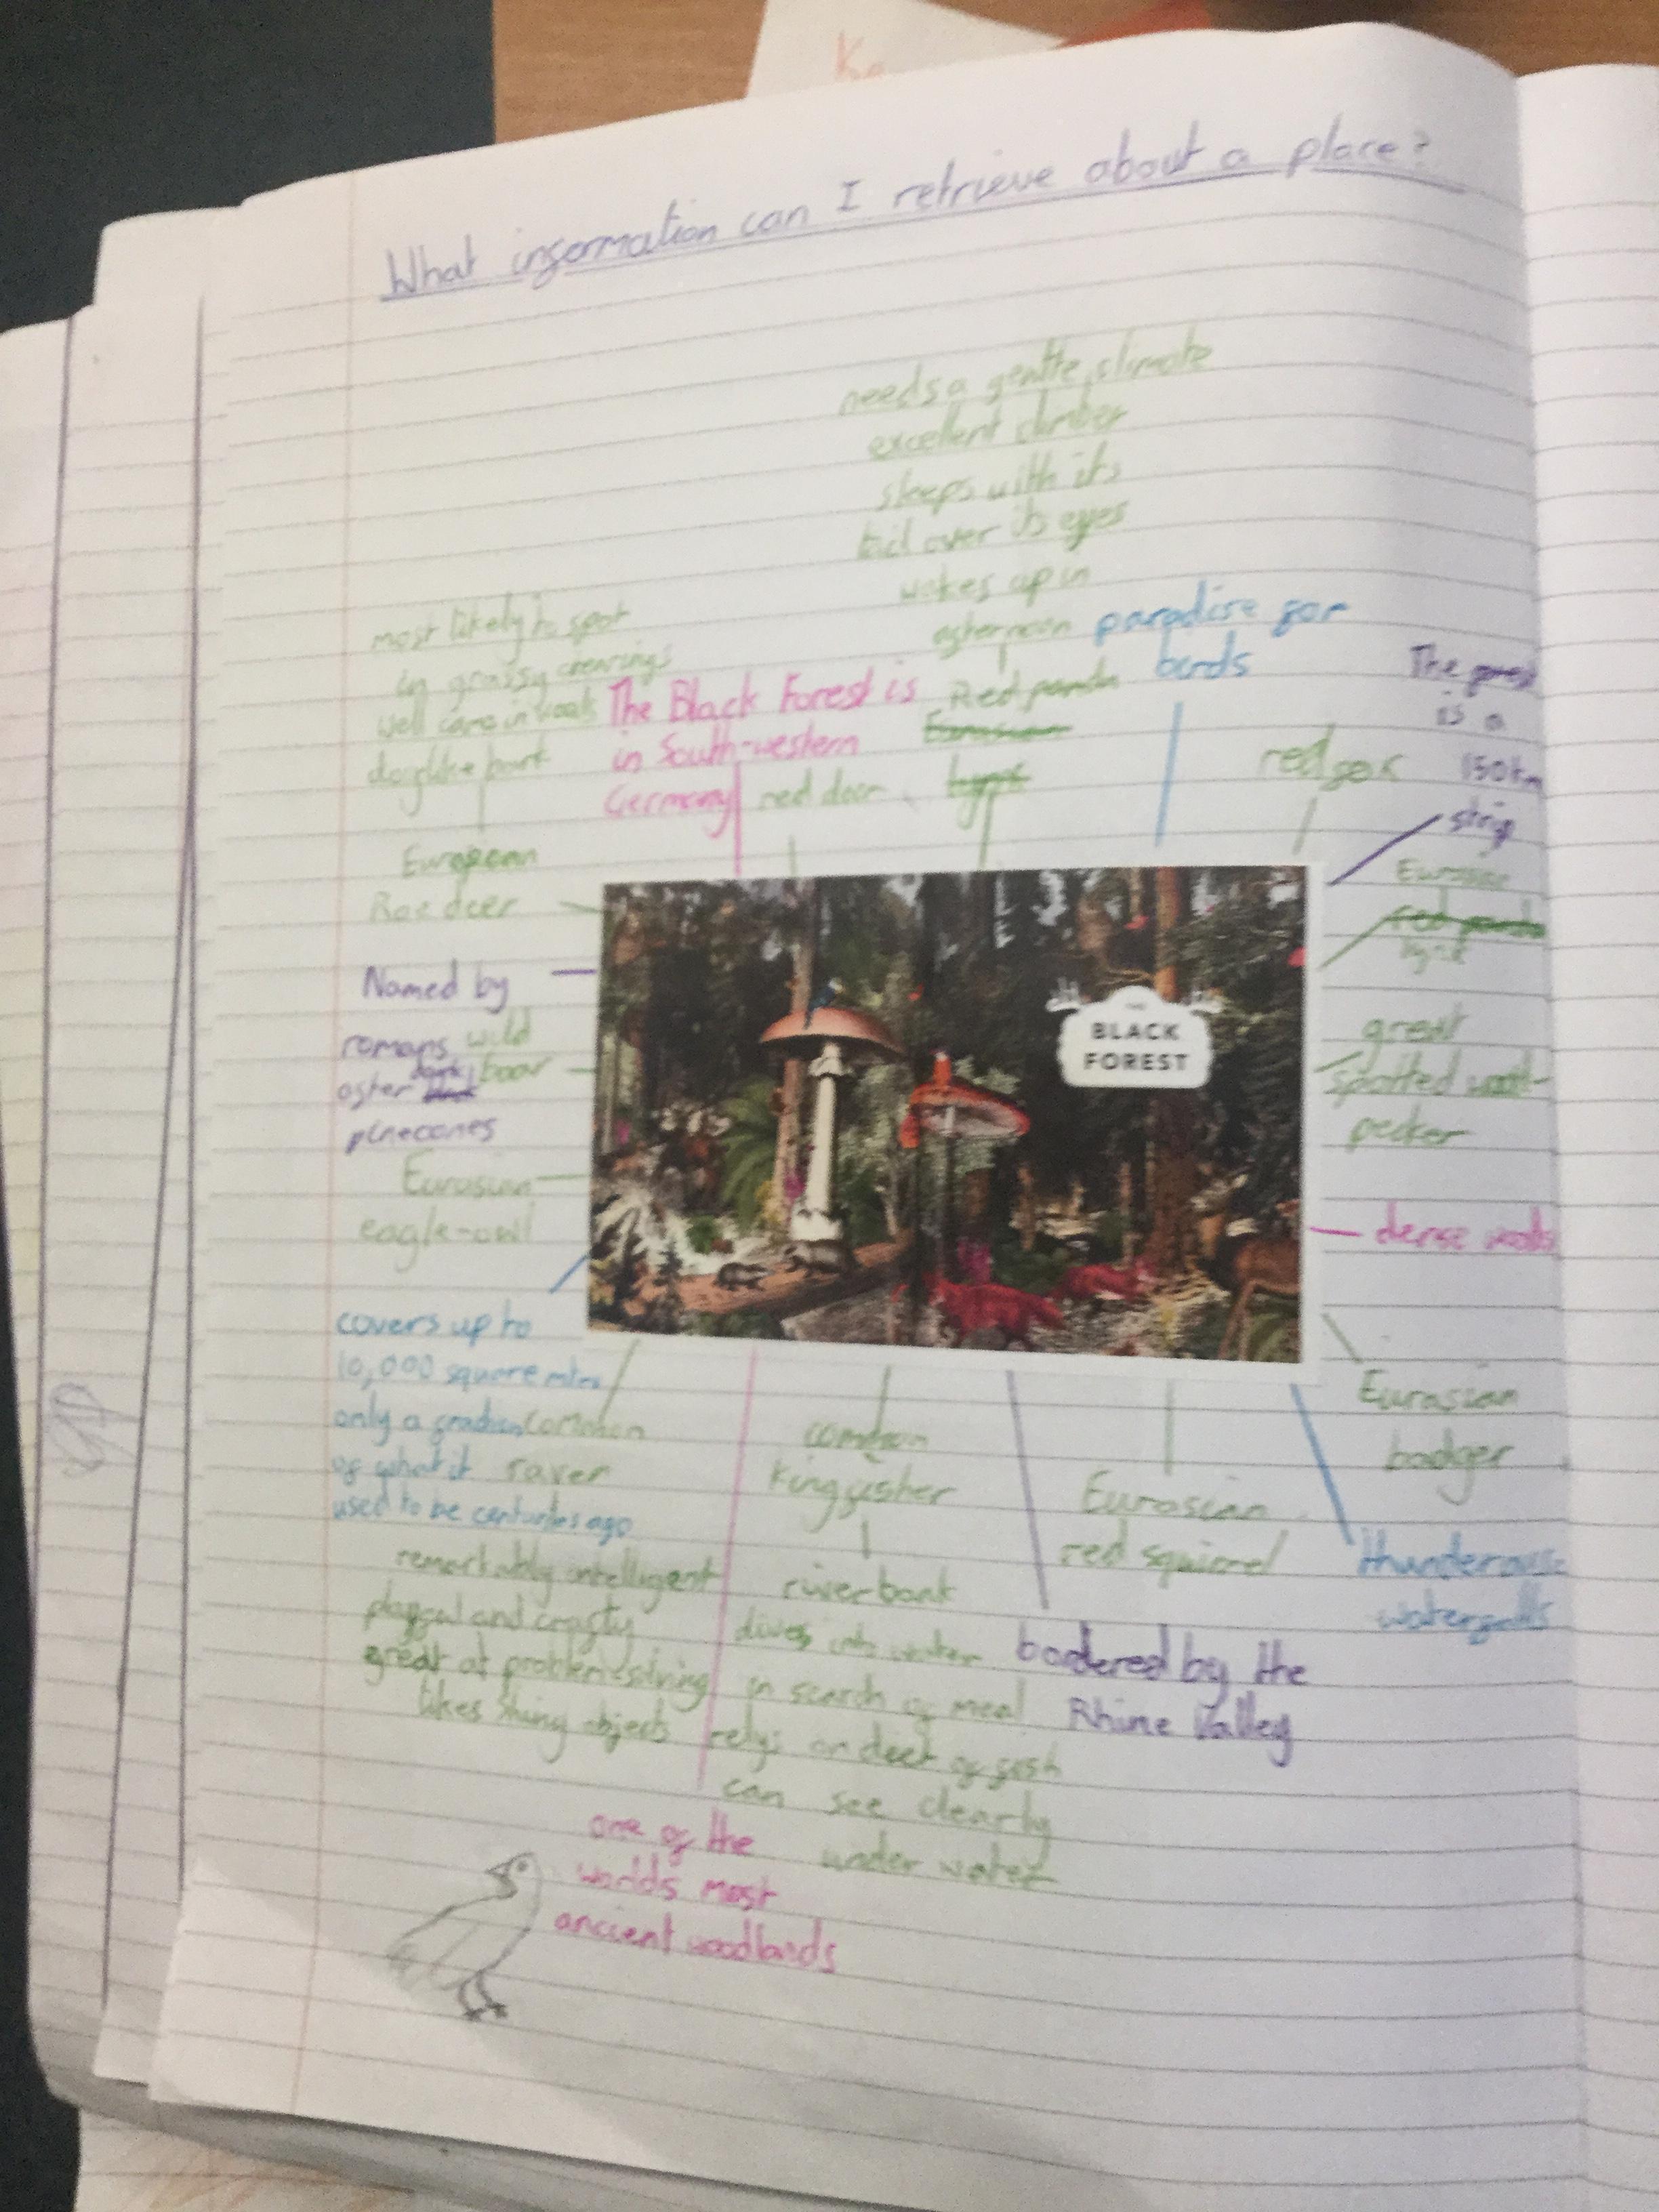 What information can I retrieve about a place?
needs a gentle climate
excellent climber
sleeps with its
tail over its eyes
wakes up in
afternoon
Red panda
paradise for
birds
The forest
is a
150km
strip
most likely to spot
in grassy clearings
well came in woods
doglike bark
European
Roe deer
The Black Forest is
in South-western
Germany
red deer
Eurasian
lynx
red fox
Eurasian
red panda
lynx
Named by
romans
after dark
pinecones
wild
boar
THE
BLACK
FOREST
great
spotted wood-
pecker
Eurasian
eagle-owl
dense woods
covers up to
10,000 square miles
only a
of what it
used to be centuries ago
common
raven
remarkably intelligent
playful and crafty
great at problem solving
likes shiny objects
common
kingfisher
riverbank
dives into water
in search of meal
relys on diet of fish
can see clearly
under water
Eurasian
red squirrel
Eurasian
badger
thunderous
waterfalls
bordered by the
Rhine Valley
one of the
worlds most
ancient woodlands